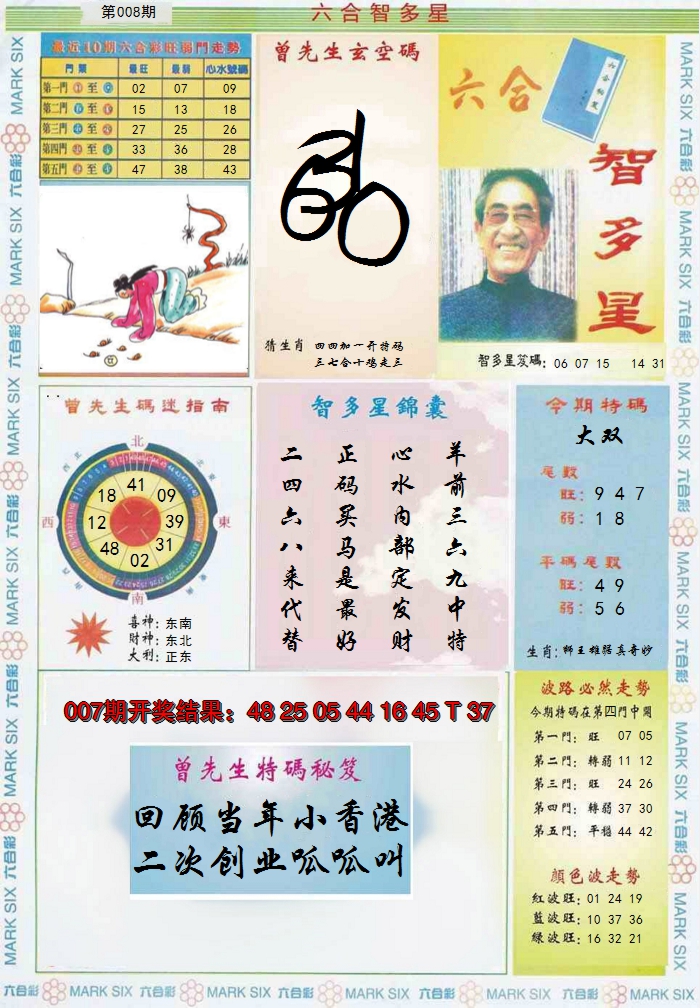 第008期
六合智多星
最近10期六合彩旺弱門走勢
門類 最旺 最弱 心水號碼
第一門 至 02 07 09
第二門 至 15 13 18
第三門 至 27 25 26
第四門 至 33 36 28
第五門 至 47 38 43
曾先生玄空碼
猜生肖
四四加一开特码
三七合十鸡走三
六合
智多星
智多星笈碼: 06 07 15 14 31
曾先生碼迷指南
北
西
東
南
18 41 09
12 39
48 02 31
喜神: 东南
財神: 东北
大利: 正东
智多星錦囊
羊前三六九中特
心水内部定发财
正码买马是最好
二四六八来代替
今期特碼
大双
尾數
旺: 9 4 7
弱: 1 8
平碼尾數
旺: 4 9
弱: 5 6
生肖: 狮王雄猛真奇妙
007期开奖结果: 48 25 05 44 16 45 T 37
曾先生特碼秘笈
回顾当年小香港
二次创业呱呱叫
波路必然走勢
今期特碼在第四門中開
第一門: 旺 07 05
第二門: 轉弱 11 12
第三門: 旺 24 26
第四門: 轉弱 37 30
第五門: 平穩 44 42
顏色波走勢
紅波旺: 01 24 19
藍波旺: 10 37 36
綠波旺: 16 32 21
MARK SIX 六合彩 MARK SIX 六合彩 MARK SIX 六合彩 MARK SIX 六合彩 MARK SIX 六合彩